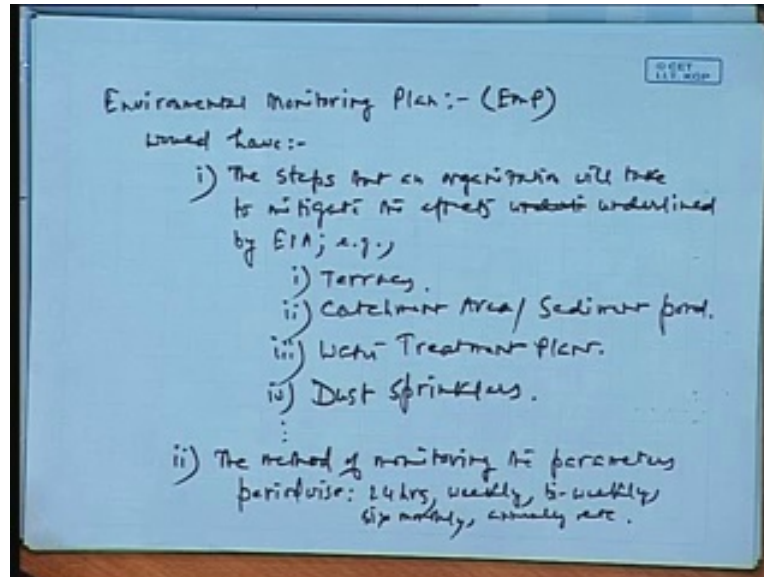 © CET
I.I.T. KGP
Enviromental Monitoring Plan:- (EMP)
Would have:-
i) The steps that an organization will take
to mitigate the effects underlined
by EIA; e.g.,
i) Terracy.
ii) Catchment Area/ Sediment pond.
iii) Water Treatment Plant.
iv) Dust Sprinklers.
⋮
ii) The method of monitoring the parameters
periodwise: 24 hrs, weekly, bi-weekly,
six monthly, annually etc.